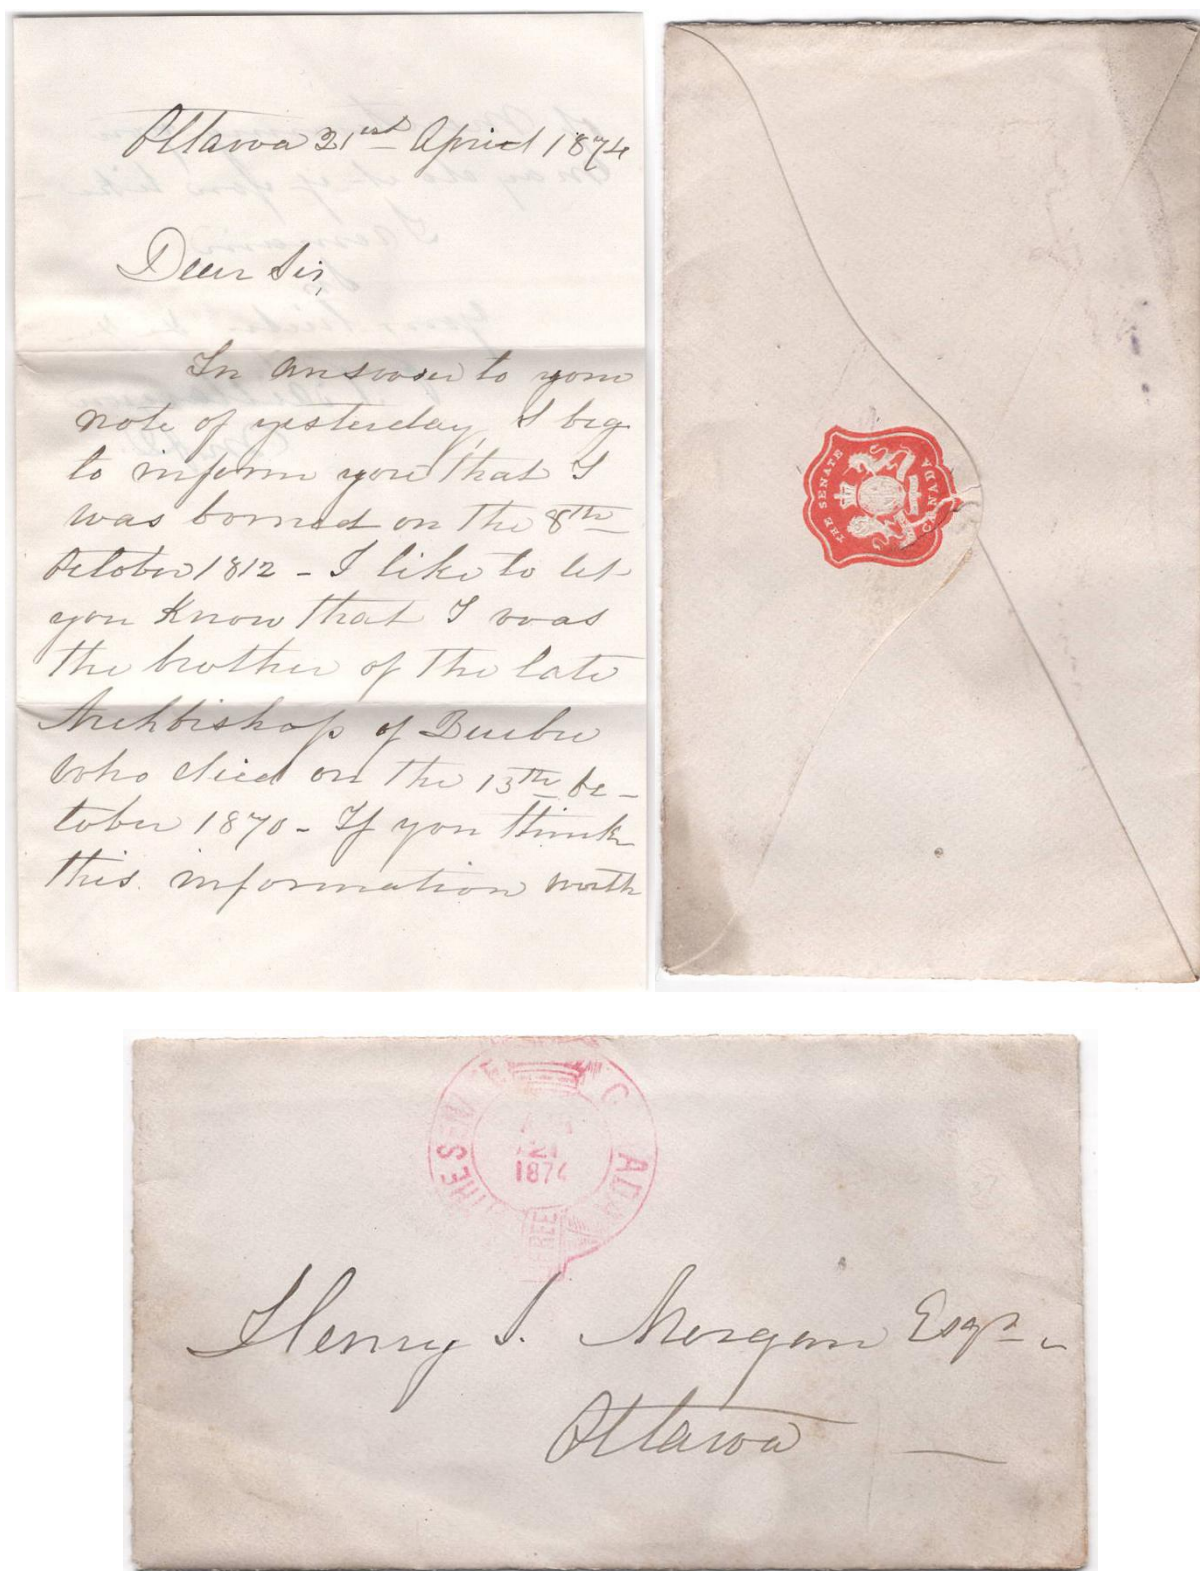 Ottawa 21st April 1874
Dear Sir,
In answer to your
note of yesterday, I beg
to inform you that I
was borned on the 8th
October 1812 - I like to let
you Know that I was
the brother of the late
Archbishop of Quebec
who died on the 13th Oc-
tober 1870 - If you think
this information worth
THE SENATE
CANADA
THE SEN
C ADA
21
1874
FREE
Henry J. Morgan Esqr
Ottawa